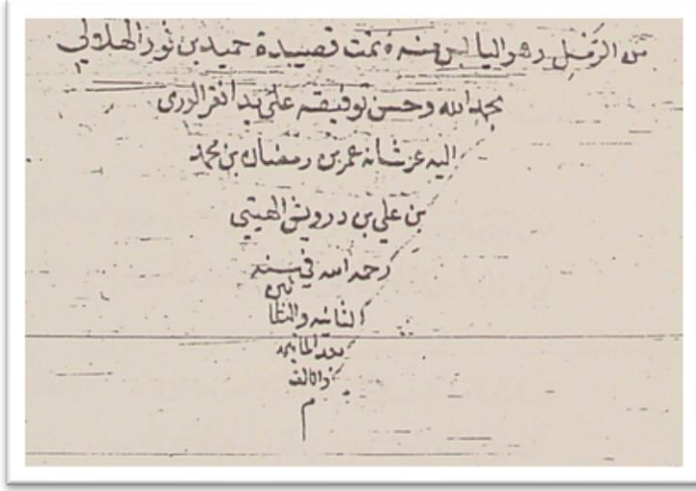 من الرمل وهو اليابس منه ة تمت قصيدة حميد بن ثور الهلالي
بحمد الله وحسن توفيقه على يد افقر الورى
اليه عز شانه عمر بن رمضان بن محمد
بن علي بن درويش الهيتي
رحمه الله في سنة
الثانيه والثلاثين
بعد المايه
والالف
م